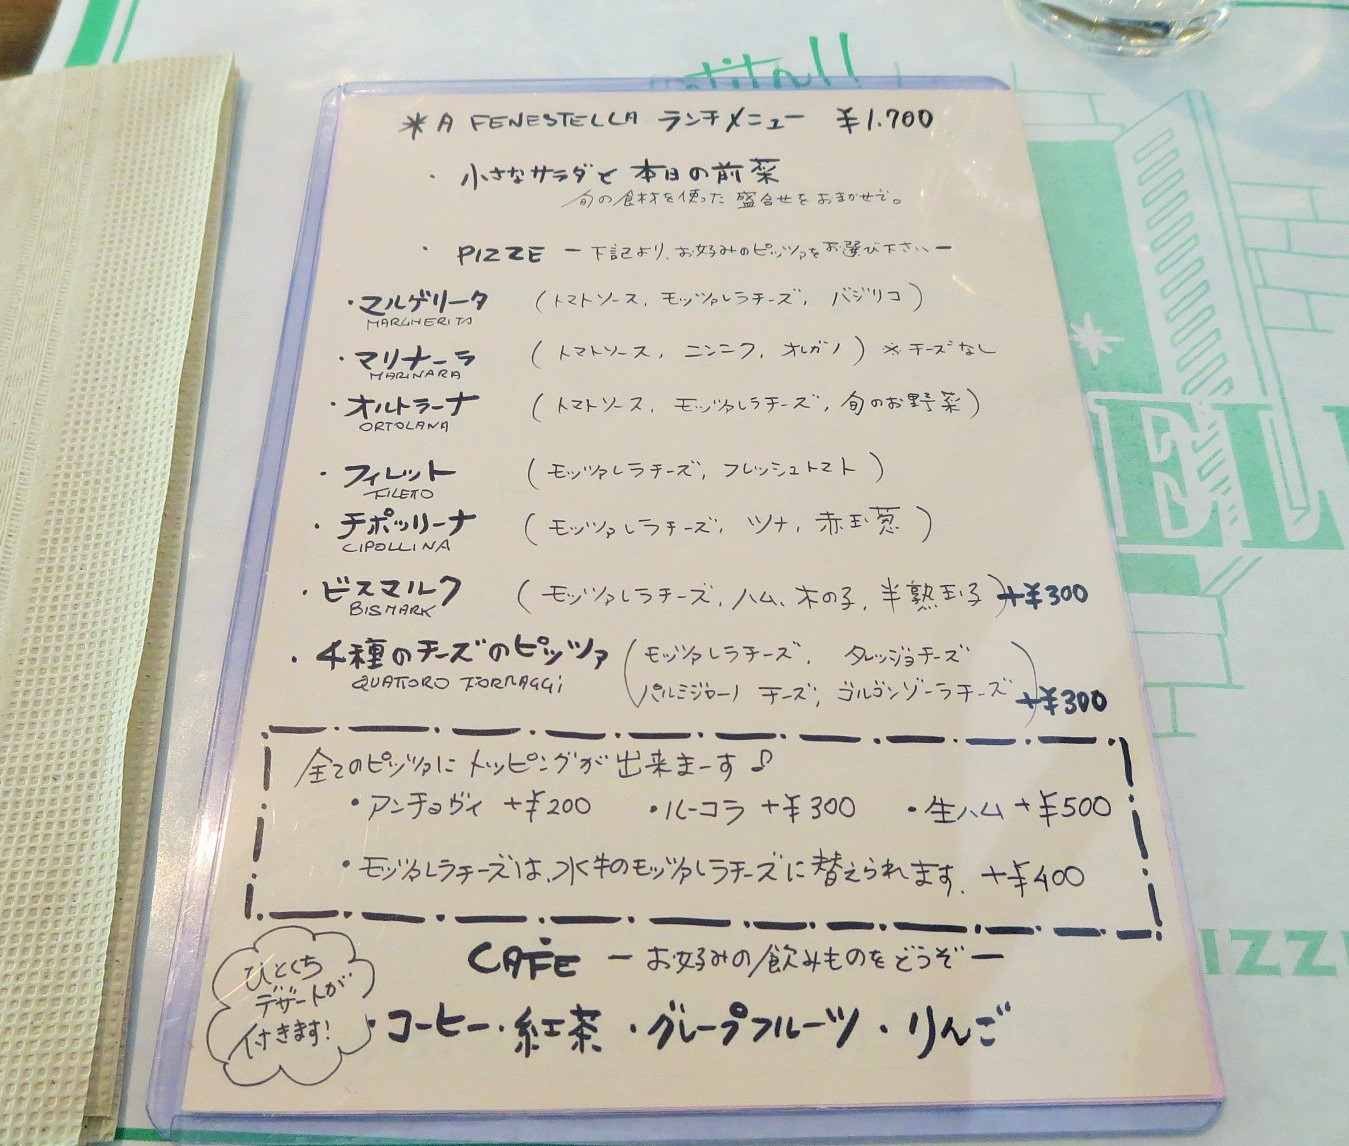 *A FENESTELLA ランチメニュー ¥1.700
・小さなサラダと本日の前菜
旬の食材を使った盛合せをおまかせで。
・PIZZE ー下記より、お好みのピッツァをお選び下さいー
・マルゲリータ (トマトソース、モッツァレラチーズ、バジリコ)
MARGHERITA
・マリナーラ (トマトソース、ニンニク、オレガノ) ※チーズなし
MARINARA
・オルトラーナ (トマトソース、モッツァレラチーズ、旬のお野菜)
ORTOLANA
・フィレット (モッツァレラチーズ、フレッシュトマト)
FILETO
・チポッリーナ (モッツァレラチーズ、ツナ、赤玉葱)
CIPOLLINA
・ビスマルク (モッツァレラチーズ、ハム、木の子、半熟玉子)+¥300
BISMARK
・4種のチーズのピッツァ (モッツァレラチーズ、タレッジョチーズ
QUATTORO FORMAGGI パルミジャーノチーズ、ゴルゴンゾーラチーズ)+¥300
全てのピッツァにトッピングが出来まーす♪
・アンチョヴィ +¥200 ・ルーコラ +¥300 ・生ハム +¥500
・モッツァレラチーズは、水牛のモッツァレラチーズに替えられます。+¥400
CAFE ーお好みの飲みものをどうぞー
ひとくち
デザートが
付きます!
・コーヒー・紅茶・グレープフルーツ・りんご
ELL
IZZ